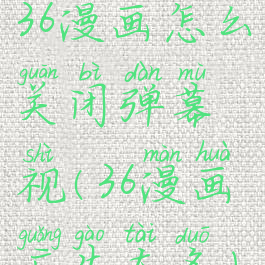 36漫画怎么
guān bì dàn mù
关闭弹幕
shì màn huà
视(36漫画
guǎng gào tài duō